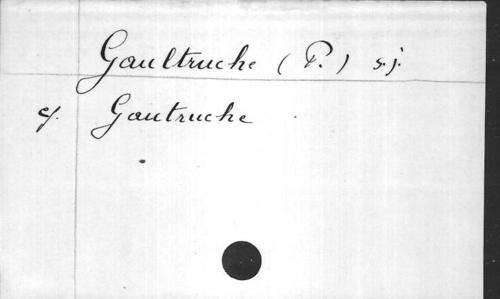 Gaultruche (P.) s.j.
cf. Gautruche